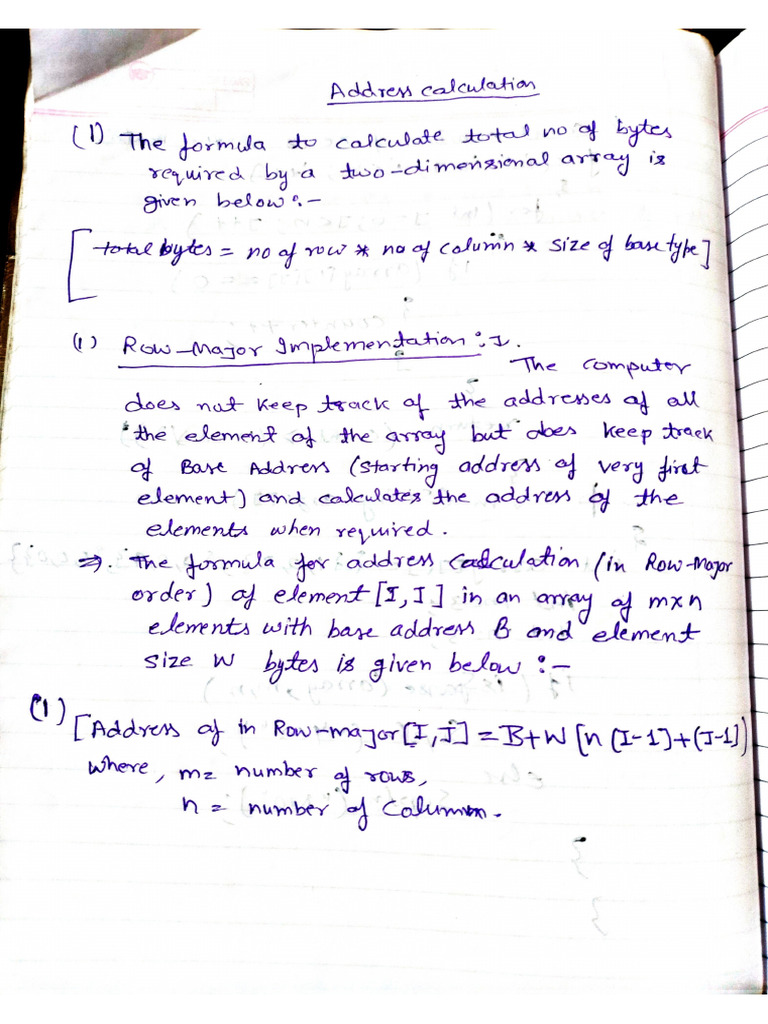 Address calculation
(1) The formula to calculate total no of bytes
required by a two-dimensional array is
given below:-
[total bytes = no of row * no of column * size of base type]
(1) Row-Major Implementation:-
The computer
does not keep track of the addresses of all
the element of the array but does keep track
of Base Address (starting address of very first
element) and calculates the address of the
elements when required.
⇒. The formula for address calculation (in Row-Major
order) of element [I,J] in an array of mxn
elements with base address B and element
size W bytes is given below:-
(1) [Address of in Row-major[I,J] = B+W[n(I-1]+(J-1])
Where, m= number of rows,
n = number of column.